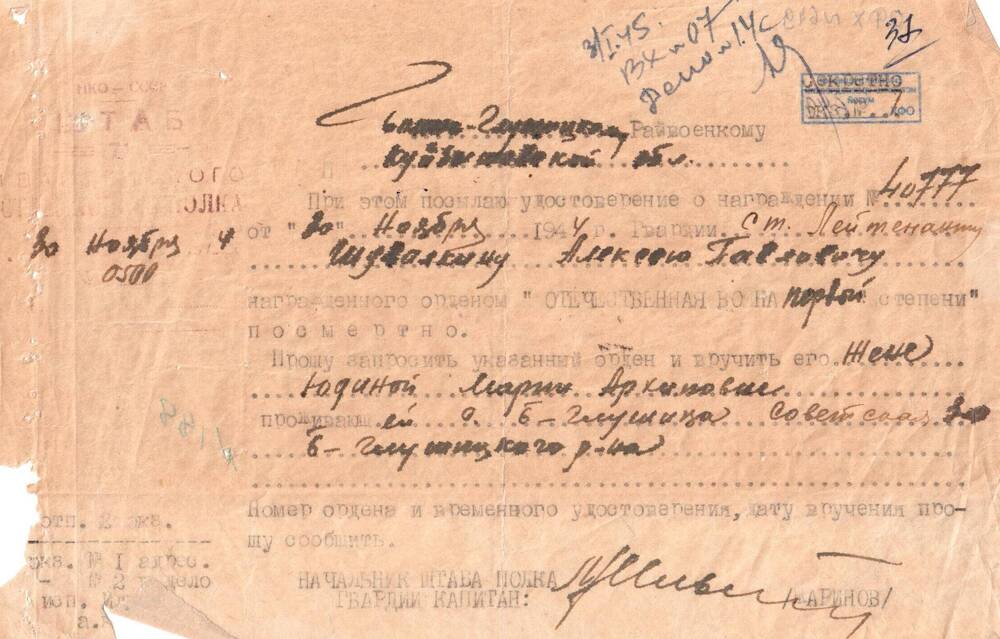 3/I.45.
ВХ № 07
Дело № 14с
37
СЕКРЕТНО
НКО-СССР
Райвоенкому
Куйбышевской обл.
При этом посылаю удостоверение о награждении № 40777
от "30" Ноября 1944 г. Гвардии Ст. Лейтенанту
30 Ноября 4
0500
Алексею Павловичу
награжденного орденом "ОТЕЧЕСТВЕННАЯ ВОЙНА первой степени"
ПОСМЕРТНО.
Прошу запросить указанный орден и вручить его Жене
Юдиной Марии Архиповне
проживающей с. Б-Глушица Советская 30
Б-Глушицкого р-на
Номер ордена и временного удостоверения, дату вручения про-
шу сообщить.
отп. 2 экз.
экз. № 1 адрес.
- № 2 в дело
исп.
НАЧАЛЬНИК ШТАБА ПОЛКА
ГВАРДИИ КАПИТАН: /МАРИНОВ/